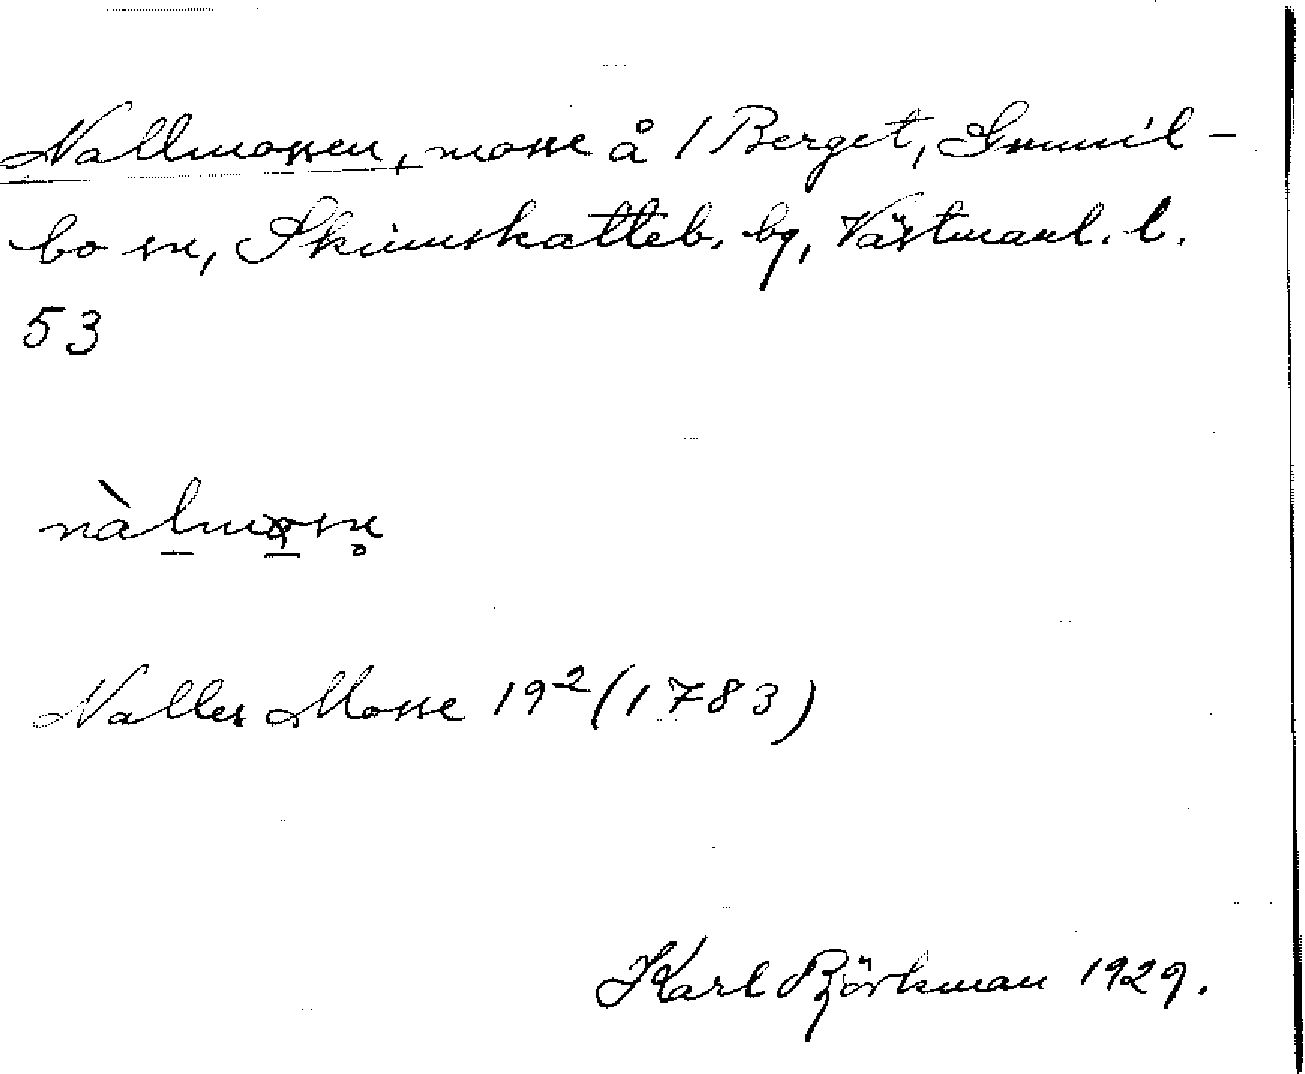 Nallmossen, mosse å 1 Berget, Gunnil-
bo sn, Skinnskatteb. bg, Västmanl. l.
53
nàlmossn̥
Nalles Mosse 19² (1783)
Karl Björkman 1929.